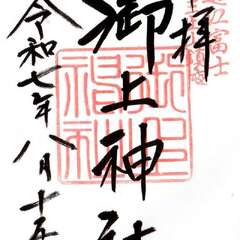 近江富士
拝
御上神社
御上
神社
令和七年八月十五